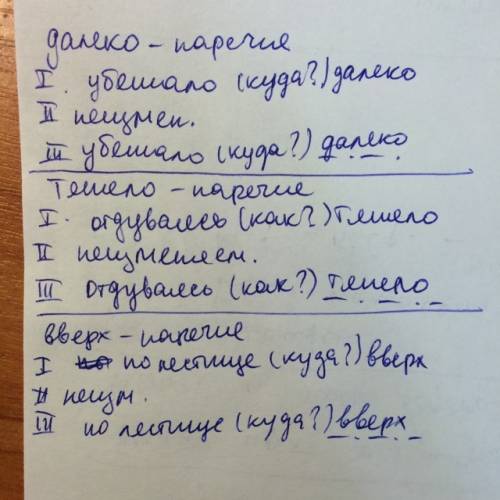 далеко – наречие
I. убежало (куда?) далеко
II неизмен.
III убежало (куда?) далеко
Тяжело – наречие
I. отдуваясь (как?) Тяжело
II неизменяем.
III отдуваясь (как?) тяжело
вверх – наречие
I по лестнице (куда?) вверх
II неизм.
III по лестнице (куда?) вверх